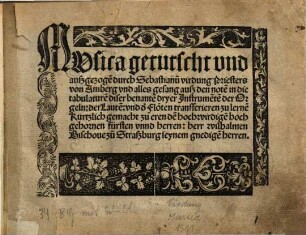 Musica getutscht und
auszgezogē durch Sebastianū virdung Priesters
von Amberg und alles gesang ausz den notē in die
tabulaturē diser benantē dryer Instrumētē der Or
geln: der Lautē: und der Flöten transferieren zu lernē
Kurtzlich gemacht zu eren dē hochwirdigē hoch
gebornen fürsten unnd herren: herr wilhalmen
Bischove zu Straszburg seynem gnedigē herren.